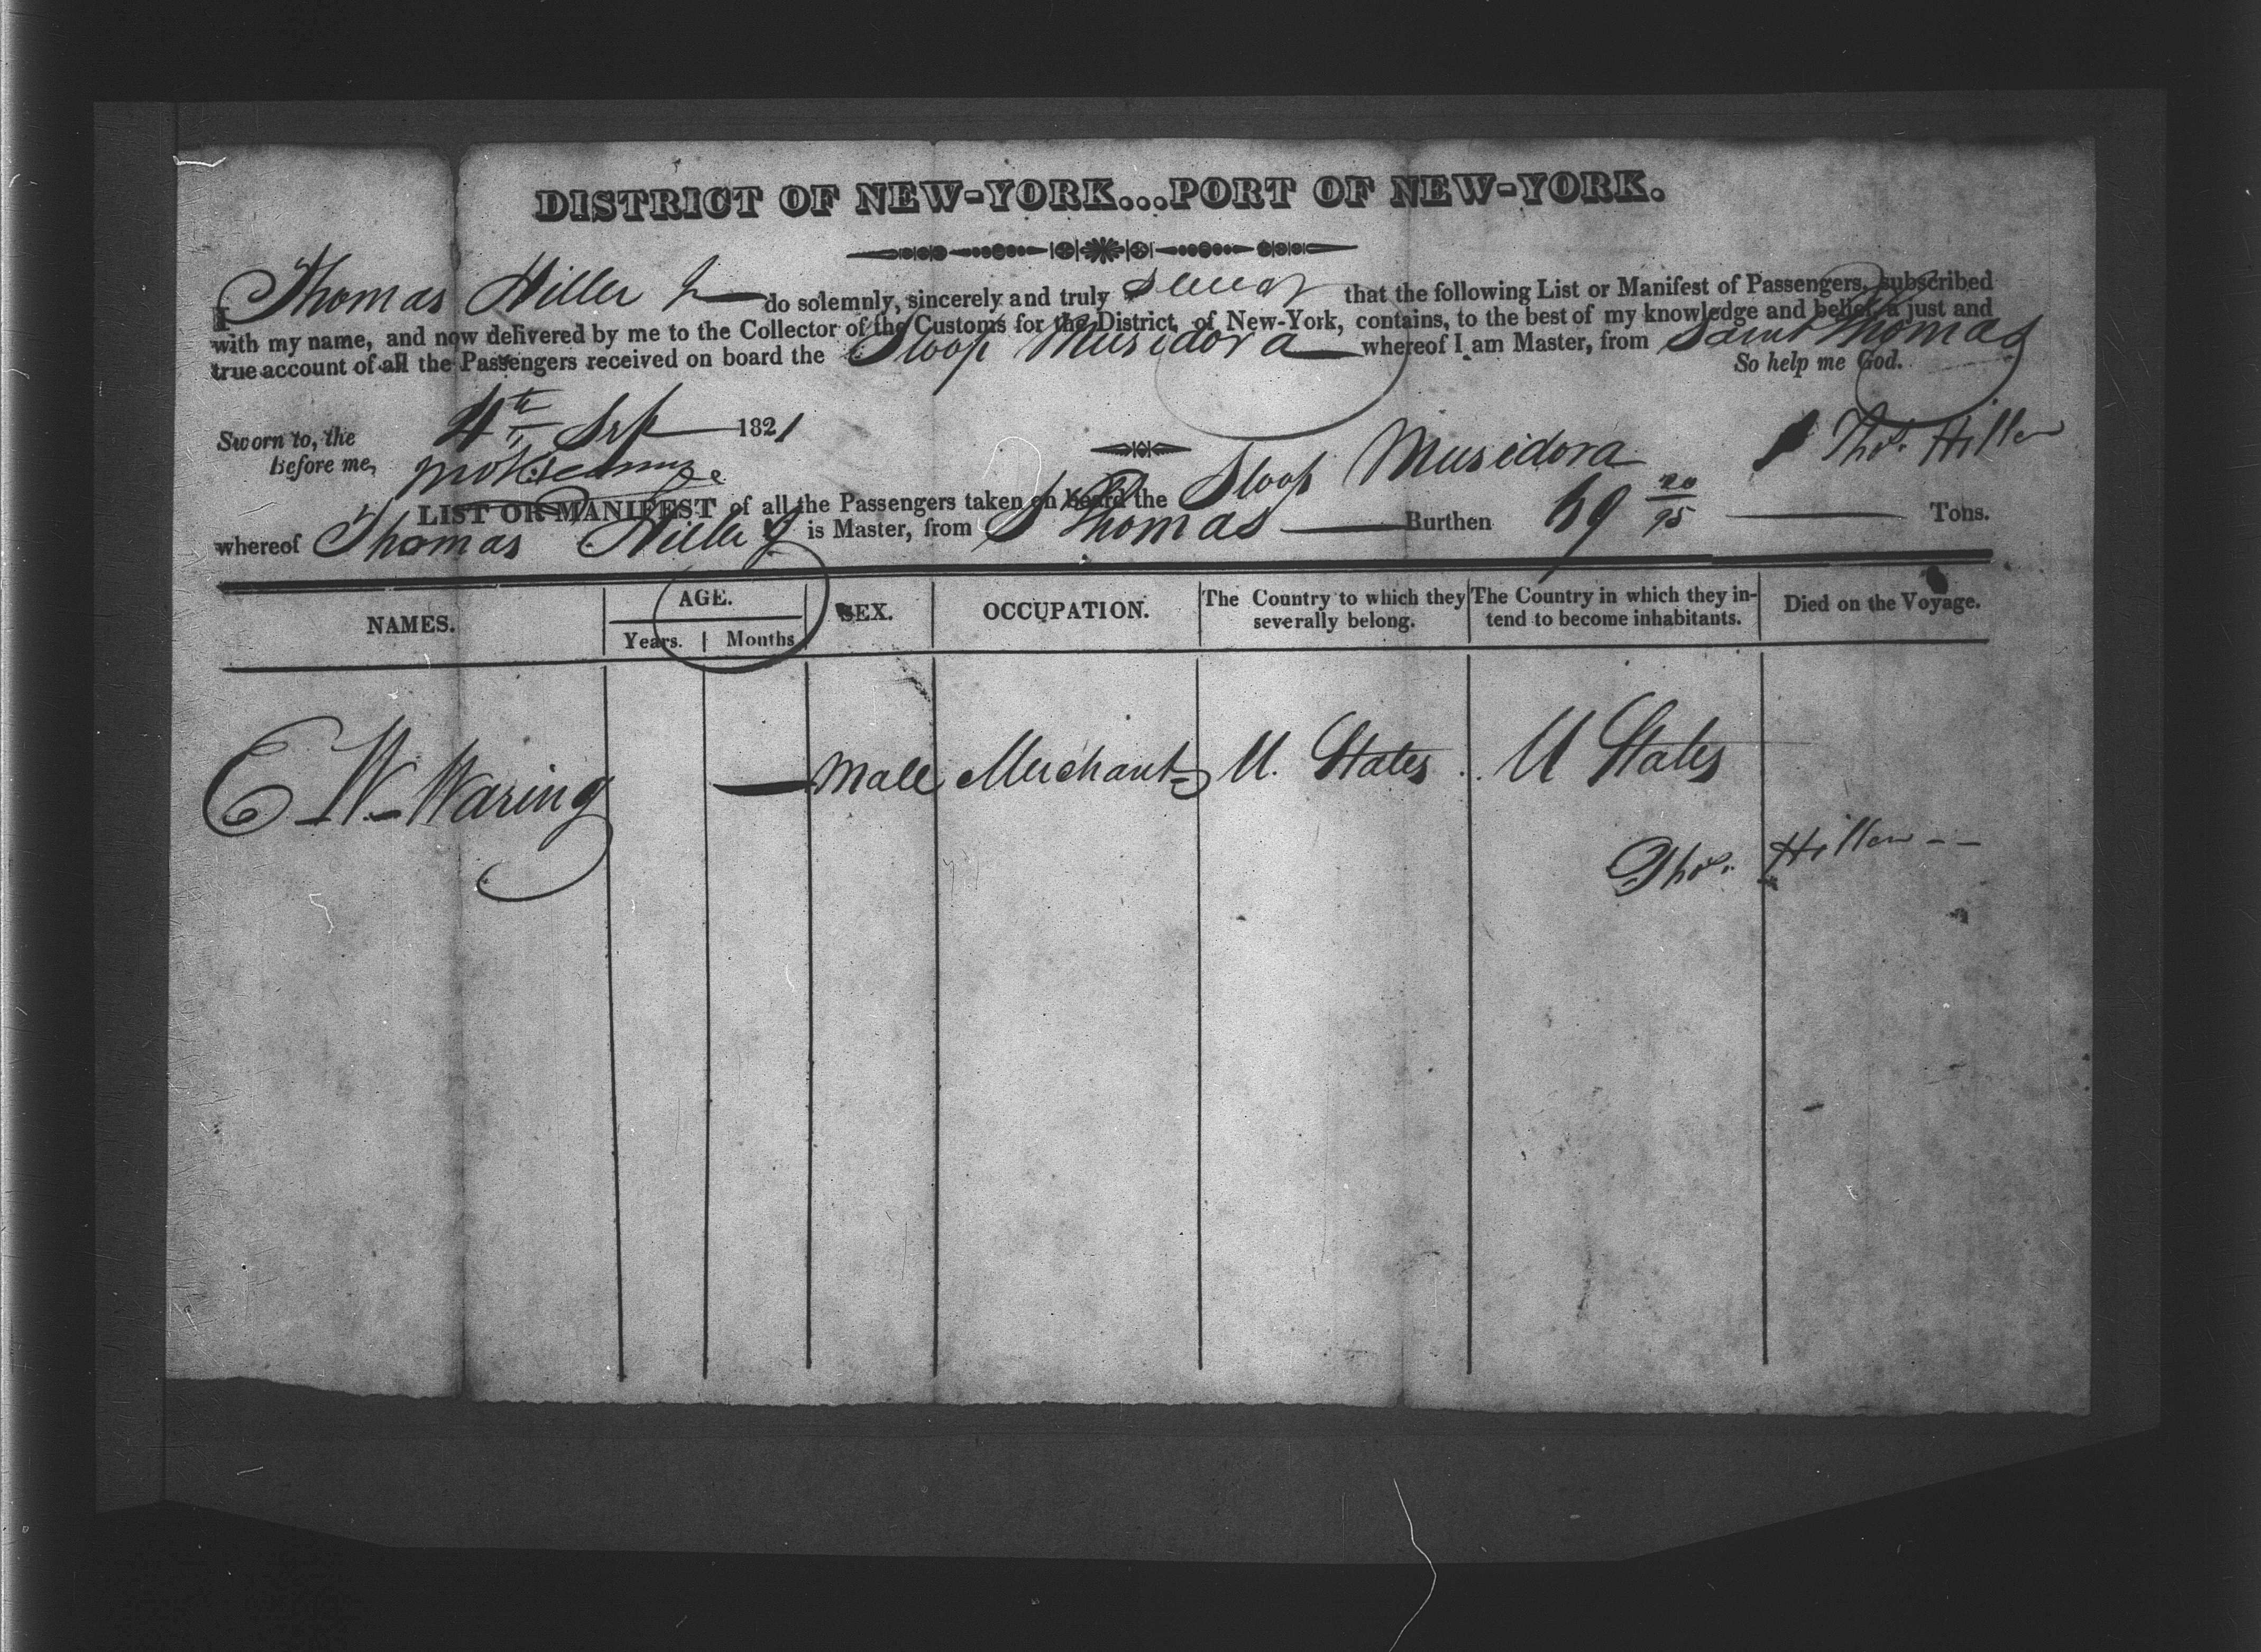 DISTRICT OF NEW-YORK...PORT OF NEW-YORK.
I Thomas Hiller Jr do solemnly, sincerely and truly Swear that the following List or Manifest of Passengers, subscribed
with my name, and now delivered by me to the Collector of the Customs for the District of New-York, contains, to the best of my knowledge and belief, a just and
true account of all the Passengers received on board the Sloop Musidora whereof I am Master, from Saint Thomas
So help me God.
Sworn to, the 4th Sep 1821
Before me,
Thos. Hiller
LIST OR MANIFEST of all the Passengers taken on board the Sloop Musidora
whereof Thomas Hiller Jr is Master, from St Thomas Burthen 69 20/95 Tons.
NAMES. AGE. SEX. OCCUPATION. The Country to which they severally belong. The Country in which they intend to become inhabitants. Died on the Voyage.
Years. Months
E W Waring — Male Merchant U. States U States
Thos. Hiller